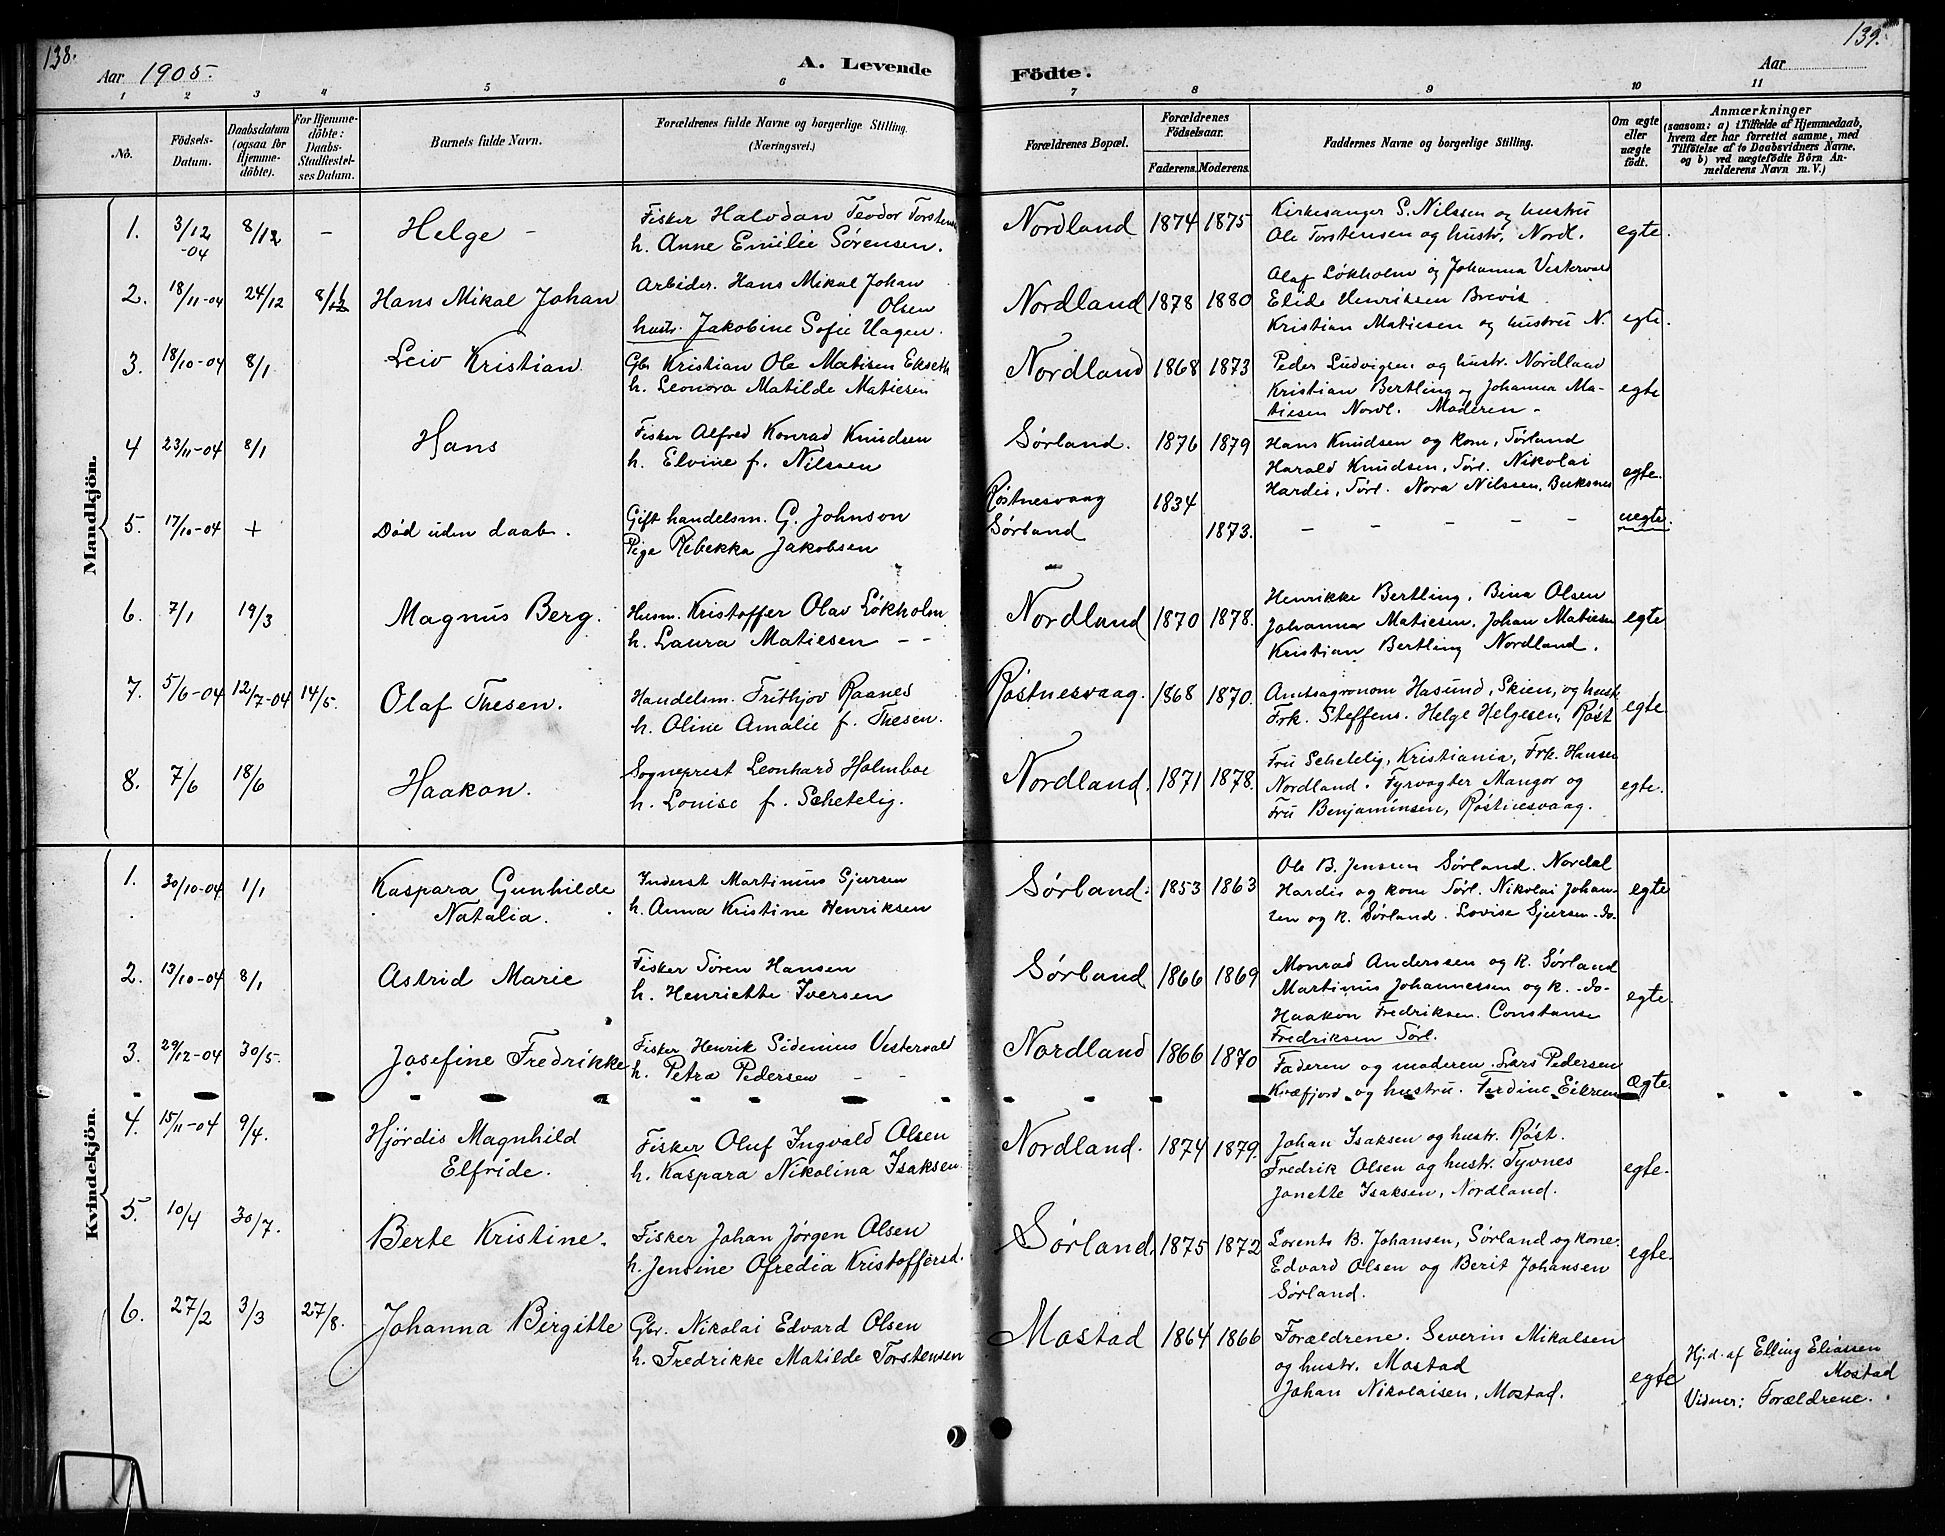 138.
139.
Aar 1905.
A. Levende
Födte.
Aar
1 2 3 4 5 6 7 8 9 10 11
No.
Födsels-Datum.
Daabsdatum (ogsaa för Hjemmedöbte).
For Hjemmedöbte: Daabs-Stadfæstelses Datum.
Barnets fulde Navn.
Forældrenes fulde Navne og borgerlige Stilling.
(Næringsvei.)
Forældrenes Bopæl.
Forældrenes Födselsaar.
Faderens. Moderens.
Faddernes Navne og borgerlige Stilling.
Om ægte eller uægte födt.
Anmærkninger
(saasom: a) i Tilfælde af Hjemmedaab,
hvem der har forrettet samme, med
Tilföielse af to Daabsvidners Navne,
og b) ved uægtefödte Börn An-
melderens Navn m. V.)
Mandkjön.
1. 3/12 -04 8/12 - Helge -
Fisker Halvdan Teodor Torstens
h. Anne Emilie Sørensen.
Nordland 1874 1875
Kirkesanger S. Nilssen og hustru
Ole Torstensen og hustr. Nordl.
egte.
2. 18/11-04 24/12 8/12 Hans Mikal Johan
Arbider. Hans Mikal Johan
Olsen
hustr. Jakobine Sofie Hagen.
Nordland 1878 1880
Olaf Løkholm og Johanna Vestervald
Elide Henriksen Brevik
Kristian Matiesen og hustru N.
egte.
3. 18/10-04 8/1 Leiv Kristian
Gbr Kristian Ole Matisen Ekseth
h. Leonora Matilde Matiesen
Nordland 1868 1873
Peder Ludvigsen og hustr. Nordland
Kristian Bertling og Johanna Ma-
tiesen Nordl. Moderen -
egte
4 23/11-04 8/1 Hans
Fisker Alfred Konrad Knudsen
h. Elvine f. Nilssen
Sørland. 1876 1879
Hans Knudsen og kone, Sørland
Harald Knudsen, Sørl. Nikolai
Hardis, Sørl. Nora Nilssen, Buksnes
egte.
5. 17/10-04 + Død uden daab.
Gift handelsm. G. Johnson
Pige Rebekka Jakobsen
Røstnesvaag 1834
Sørland 1873.
- - - - -
uegte.
6. 7/1 19/3 Magnus Berg.
Husm. Kristoffer Olav Løkholm
h. Laura Matiesen - -
Nordland 1870 1878.
Henrikke Bertling, Bina Olsen
Johanna Matiesen, Johan Matiesen
Kristian Bertling Nordland.
egte
7. 5/6-04 12/7-04 14/5. Olaf Thesen.
Handelsm. Frithjov Raanes
h. Oline Amalie f. Thesen.
Røstnesvaag. 1868 1870.
Amtsagronom Hasund, Skien, og hust
Frk. Steffens. Helge Helgesen, Røst
egte
8. 7/6 18/6 Haakon.
Sogneprest Leonhard Holmboe
h. Louise f. Schetelig.
Nordland. 1871 1878.
Fru Schetelig, Kristiania, Frk. Hansen
Nordland. Fyrvagter Mangor og
Fru Benjaminsen, Røstnesvaag.
egte.
Kvindekjön.
1. 30/10-04 1/1 Kaspara Gunhilde
Natalia.
Inderst Martinius Sjursen
h. Anna Kristine Henriksen
Sørland. 1853 1863
Ole B. Jenssen Sørland. Nordal
Hardis og kone Sørl. Nikolai Johan-
sen og k. Sørland. Lovise Sjursen -do-
egte
2. 13/10-04 8/1 Astrid Marie
Fisker Søren Hansen
h. Henriette Iversen
Sørland 1866 1869
Monrad Anderssen og k. Sørland
Martinus Johannessen og k. -do-
Haakon Fredriksen. Constanse
Fredriksen Sørl.
egte.
3. 29/12-04 30/5. Josefine Fredrikke
Fisker Henrik Sidenius Vestervald
h. Petra Pedersen - -
Nordland 1866 1870
Faderen og moderen. Lars Pedersen
Kvæfjord og hustru. Ferdine Eilrem
Ægte.
4. 15/11-04 9/4. Hjørdis Magnhild
Elfride.
Fisker Oluf Ingvald Olsen
h. Kaspara Nikolina Isaksen.
Nordland. 1874 1879.
Johan Isaksen og hustr. Røst.
Fredrik Olsen og hustr. Tyvnes
Janette Isaksen, Nordland.
egte.
5. 10/4 30/7. Berte Kristine.
Fisker Johan Jørgen Olsen
h. Jensine Ofredia Kristoffersd.
Sørland. 1875 1872
Lorents B. Johansen, Sørland og kone.
Edvard Olsen og Berit Johansen
Sørland.
egte.
6. 27/2 3/3 27/8. Johanna Birgitte
Gbr. Nikolai Edvard Olsen
h. Fredrikke Matilde Torstensen
Mostad 1864 1866
Forældrene. Severin Mikalsen
og hustr. Mostad
Johan Nikolaisen, Mostad.
egte
Hj.d. af Elling Eliassen
Mostad
Vidner: Forældrene.